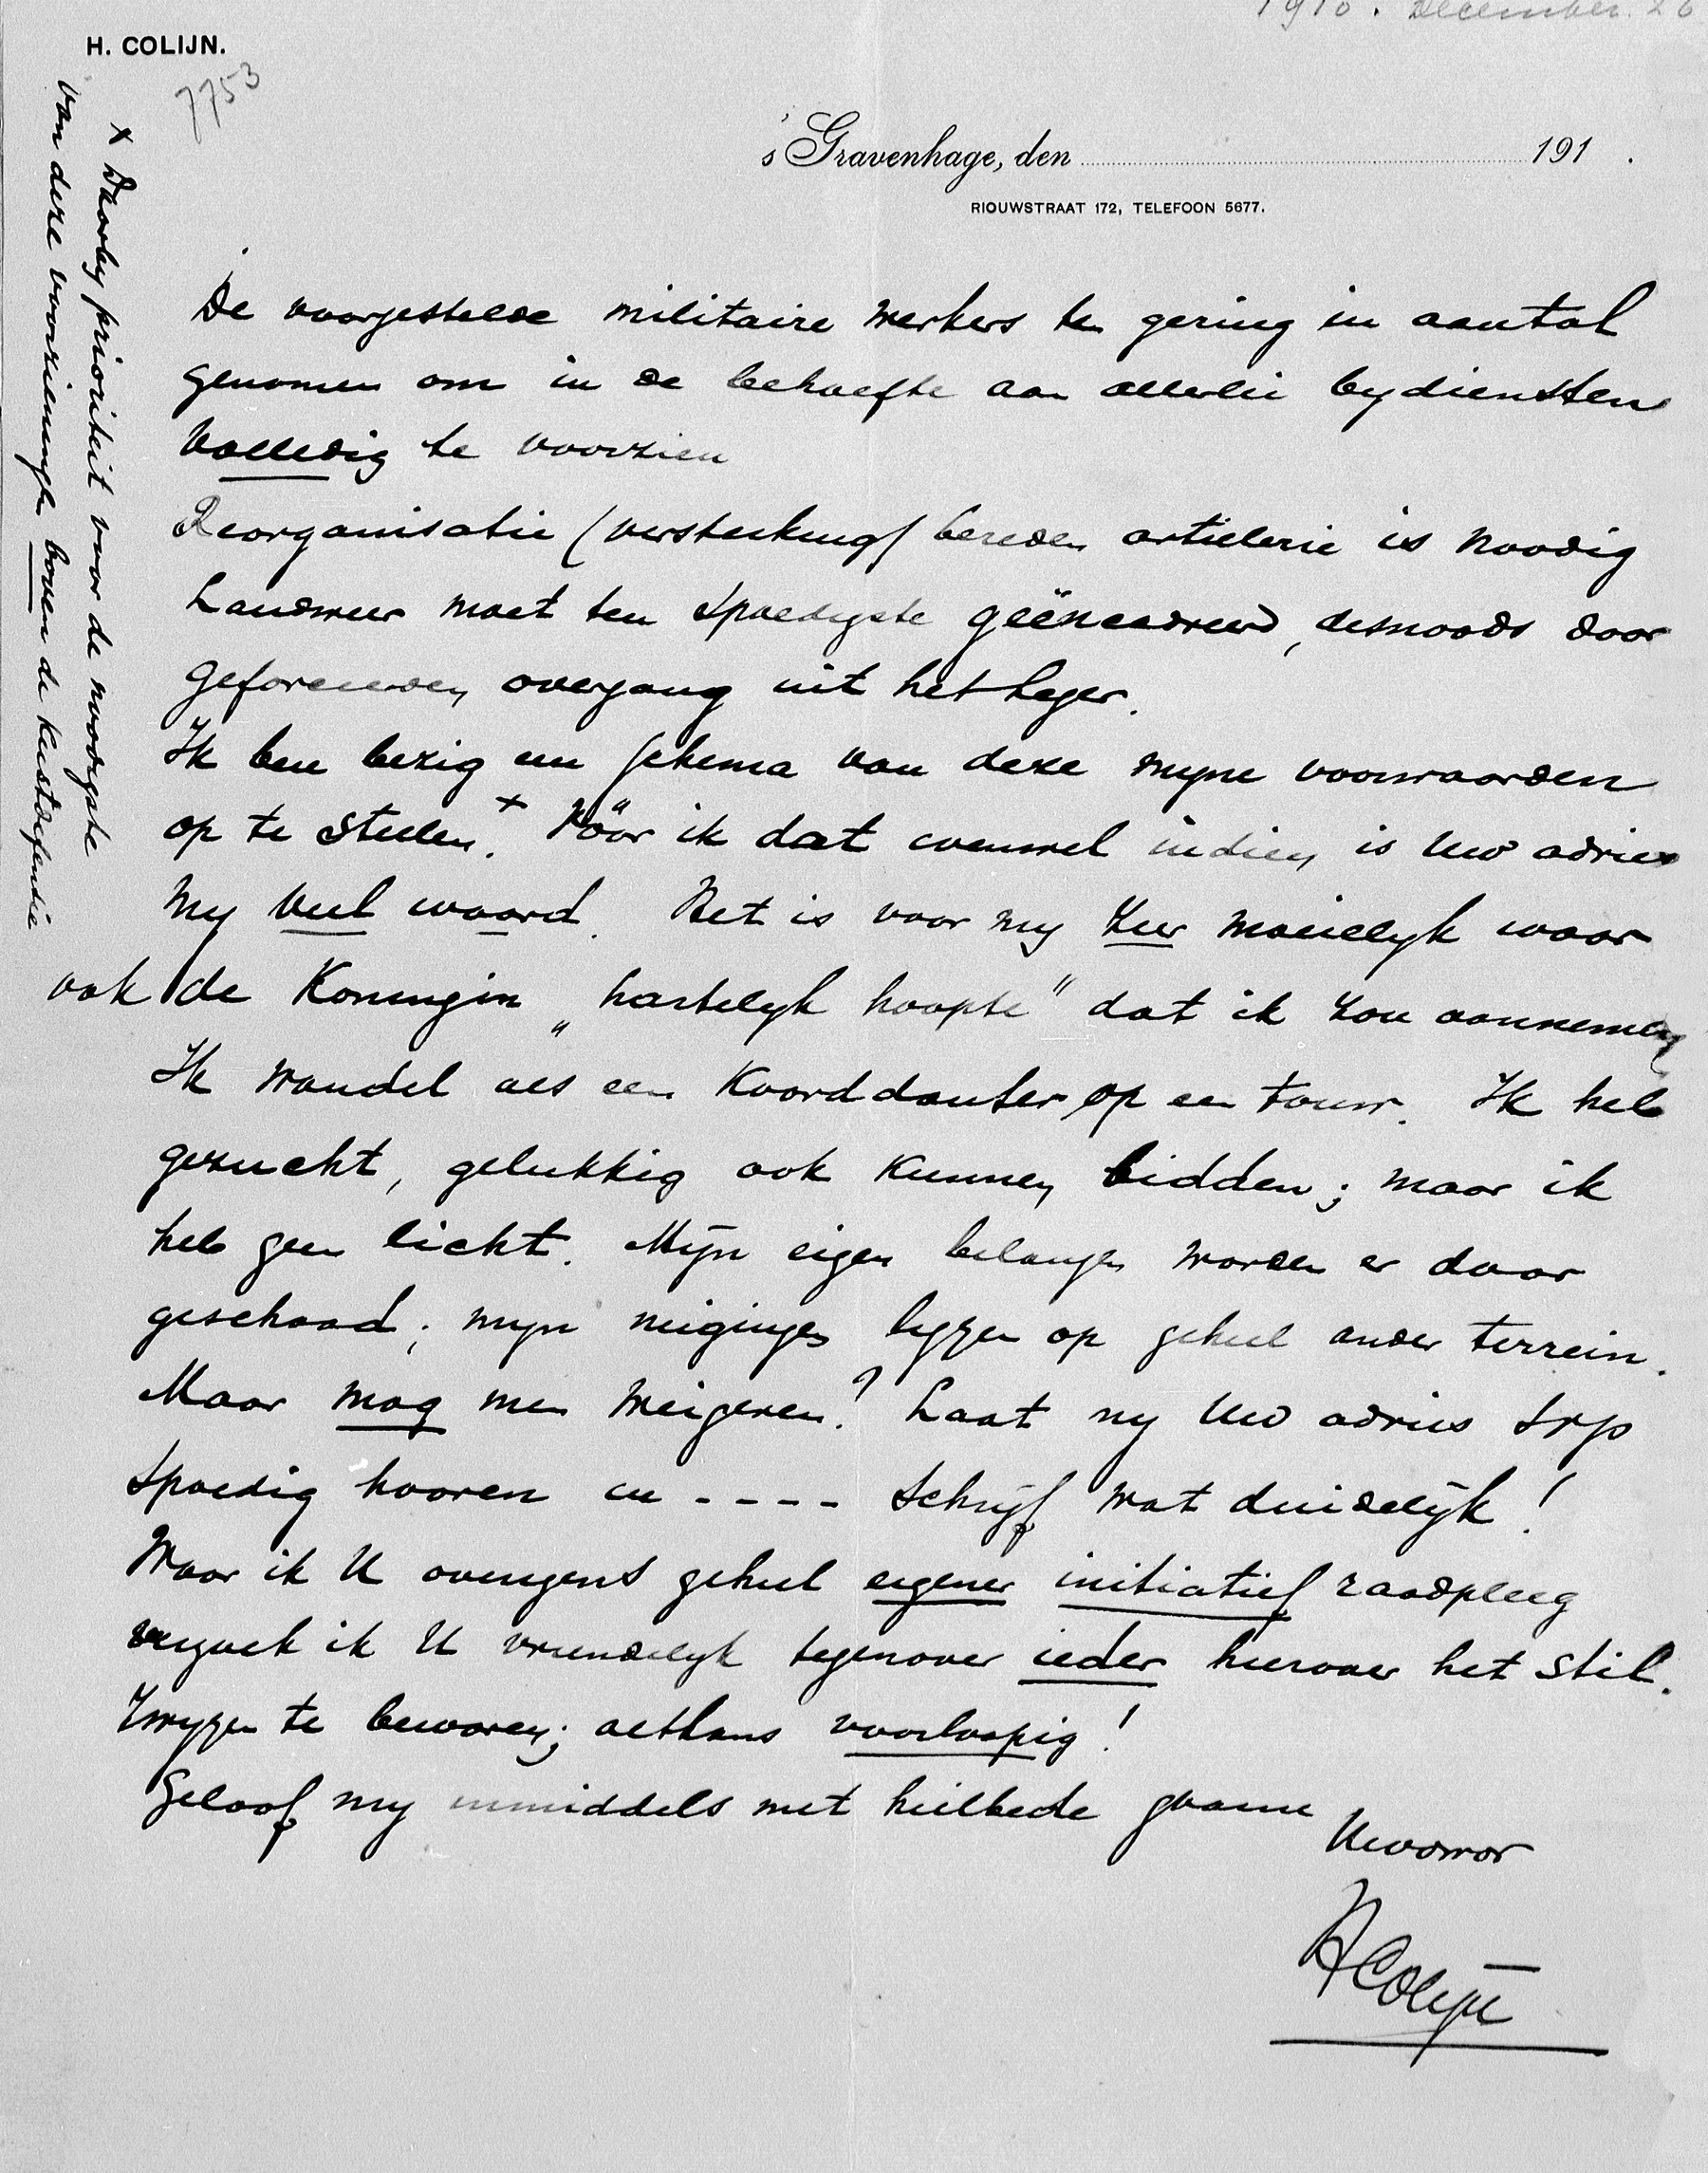 1910. December. 26
H. COLIJN.
7753
's Gravenhage, den 191 .
RIOUWSTRAAT 172, TELEFOON 5677.
De voorgestelde militaire werkers te gering in aantal
genomen om in de behoefte aan allerlei bydiensten
volledig te voorzien
Reorganisatie (versterking) bereden artillerie is noodig
Landweer moet ten spoedigste geëncadreerd, desnoods door
geforceerden overgang uit het leger.
Ik ben bezig een schema van deze myne voorwaarden
op te stellen.x Vóór ik dat evenwel indien, is Uw advies
my veel waard. Het is voor my zeer moeielyk waar
ook de Koningin „hartelyk hoopte" dat ik zou aannemen
Ik wandel als een Koorddanser op een touw. Ik heb
gezucht, gelukkig ook kunnen bidden; maar ik
heb geen licht. Mijn eigen belangen worden er door
geschaad; myn neigingen liggen op geheel ander terrein.
Maar mag men weigeren? Laat my Uw advies svp
spoedig hooren en ---- schryf wat duidelijk!
Waar ik U overigens geheel eigener initiatief raadpleeg
verzoek ik U vriendelyk tegenover ieder hierover het stil-
zwygen te bewaren; althans voorloopig!
Geloof my inmiddels met heilbede gaarne
Uwdwdr
HColijn
x Daarby prioriteit voor de noodigste
van deze voorzieningen boven de kustdefentie